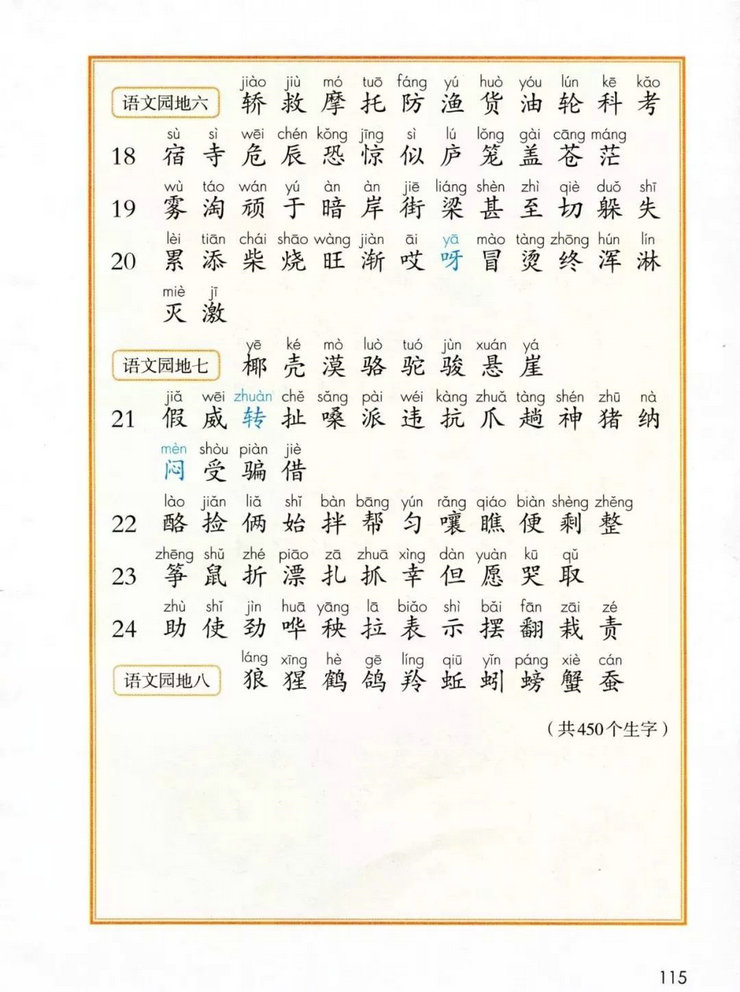 jiào jiù mó tuō fáng yú huò yóu lún kē kǎo
语文园地六 轿 救 摩 托 防 渔 货 油 轮 科 考
sù sì wēi chén kǒng jīng sì lú lǒng gài cāng máng
18 宿 寺 危 辰 恐 惊 似 庐 笼 盖 苍 茫
wù táo wán yú àn àn jiē liáng shèn zhì qiè duǒ shī
19 雾 淘 顽 于 暗 岸 街 梁 甚 至 切 躲 失
lèi tiān chái shāo wàng jiàn āi yā mào tàng zhōng hún lín
20 累 添 柴 烧 旺 渐 哎 呀 冒 烫 终 浑 淋
miè jī
灭 激
yē ké mò luò tuó jùn xuán yá
语文园地七 椰 壳 漠 骆 驼 骏 悬 崖
jiǎ wēi zhuàn chě sǎng pài wéi kàng zhuǎ tàng shén zhū nà
21 假 威 转 扯 嗓 派 违 抗 爪 趟 神 猪 纳
mèn shòu piàn jiè
闷 受 骗 借
lào jiǎn liǎ shǐ bàn bāng yún rǎng qiáo biàn shèng zhěng
22 酪 捡 俩 始 拌 帮 匀 嚷 瞧 便 剩 整
zhēng shǔ zhé piāo zā zhuā xìng dàn yuàn kū qǔ
23 筝 鼠 折 漂 扎 抓 幸 但 愿 哭 取
zhù shǐ jìn huā yāng lā biǎo shì bǎi fān zāi zé
24 助 使 劲 哗 秧 拉 表 示 摆 翻 栽 责
láng xīng hè gē líng qiū yǐn páng xiè cán
语文园地八 狼 猩 鹤 鸽 羚 蚯 蚓 螃 蟹 蚕
（共450个生字）
115